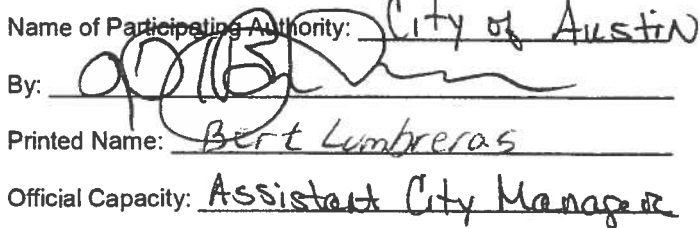 Name of Participating Authority: City of Austin
By:
Printed Name: Bert Lumbreras
Official Capacity: Assistant City Manager